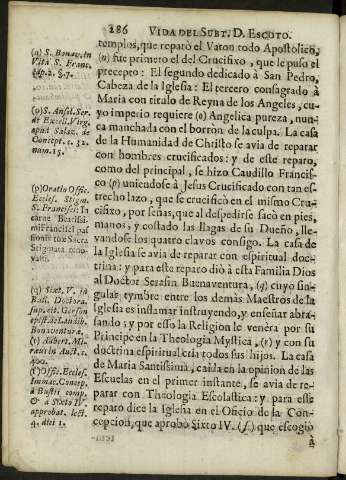 286 VIDA DEL SUBT. D. ESCOTO.
templos, que reparò el Varon todo Apostolico,
(n) fue primero el del Crucifixo, que le puso el
precepto: El segundo dedicado à San Pedro,
Cabeza de la Iglesia: El tercero consagrado à
Maria con titulo de Reyna de los Angeles, cu-
yo imperio requiere (o) Angelica pureza, nun-
ca manchada con el borron de la culpa. La casa
de la Humanidad de Christo se avia de reparar
con hombres crucificados: y de este reparo,
como del principal, se hizo Caudillo Francis-
co (p) uniendose à Jesus Crucificado con tan es-
trecho lazo, que se crucificò en el mismo Cru-
cifixo, por señas, que al despedirse sacò en pies,
manos, y costado las llagas de su Dueño, lle-
vandose los quatro clavos consigo. La casa de
la Iglesia se avia de reparar con espiritual doc-
trina: y para este reparo diò à esta Familia Dios
al Doctor Serafin Buenaventura, (q) cuyo sin-
gular tymbre entre los demàs Maestros de la
Iglesia es inflamar instruyendo, y enseñar abra-
sando; y por esso la Religion le venera por su
Principe en la Theologia Mystica, (r) y con su
doctrina espiritualiza todos sus hijos. La casa
de Maria Santissima, caida en la opinion de las
Escuelas en el primer instante, se avia de re-
parar con Theologia Escolastica: y para este
reparo dice la Iglesia en el Oficio de la Con-
cepcion, que aprobò Sixto IV. (s) que escogiò
à
(n) S. Bonav. in
Vita S. Franc.
cap. 2. & 7.
(o) S. Ansel. Ser.
de Excell. Virg.
apud Salaz. de
Concept. c. 32.
num. 15.
(p) Oratio Offic.
Eccles. Stigm.
S. Francisci: In
carne Beatissi-
mi Francisci pas
sionis tuæ Sacra
Stigmata reno-
vasti.
(q) Sixt. V. in
Bull. Doctora.
sup. cit. Gerson
epist. de Laudib.
Bonaventuræ.
(r) Aubert. Mi-
ræus in Auct. c.
400.
(s) Offic. Eccles.
Immac. Concep.
à Bustis comp.
& à Sixto IV
approbat. lect.
9. diei 1.